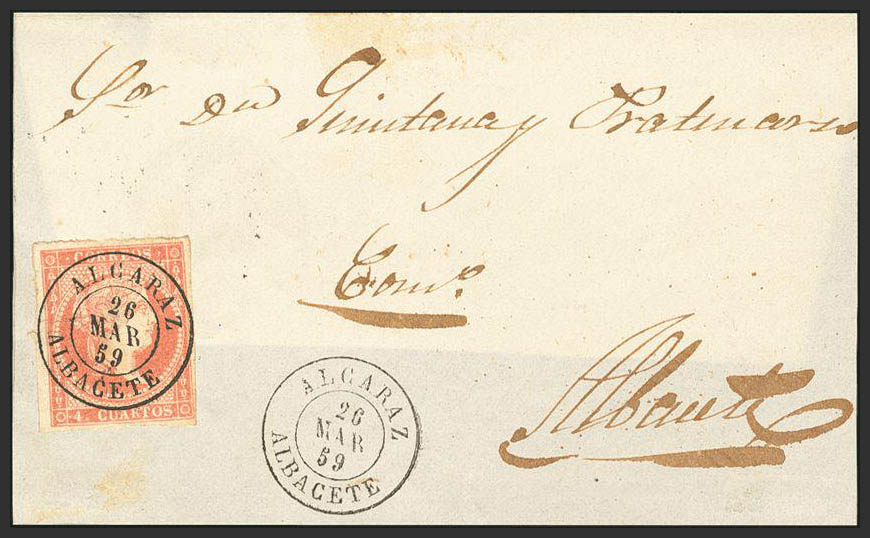 Sor Dn Quintana y
Comº
Albacete
CORREOS
ALCARAZ
26
MAR
59
ALBACETE
4. CUARTOS
ALCARAZ
26
MAR
59
ALBACETE